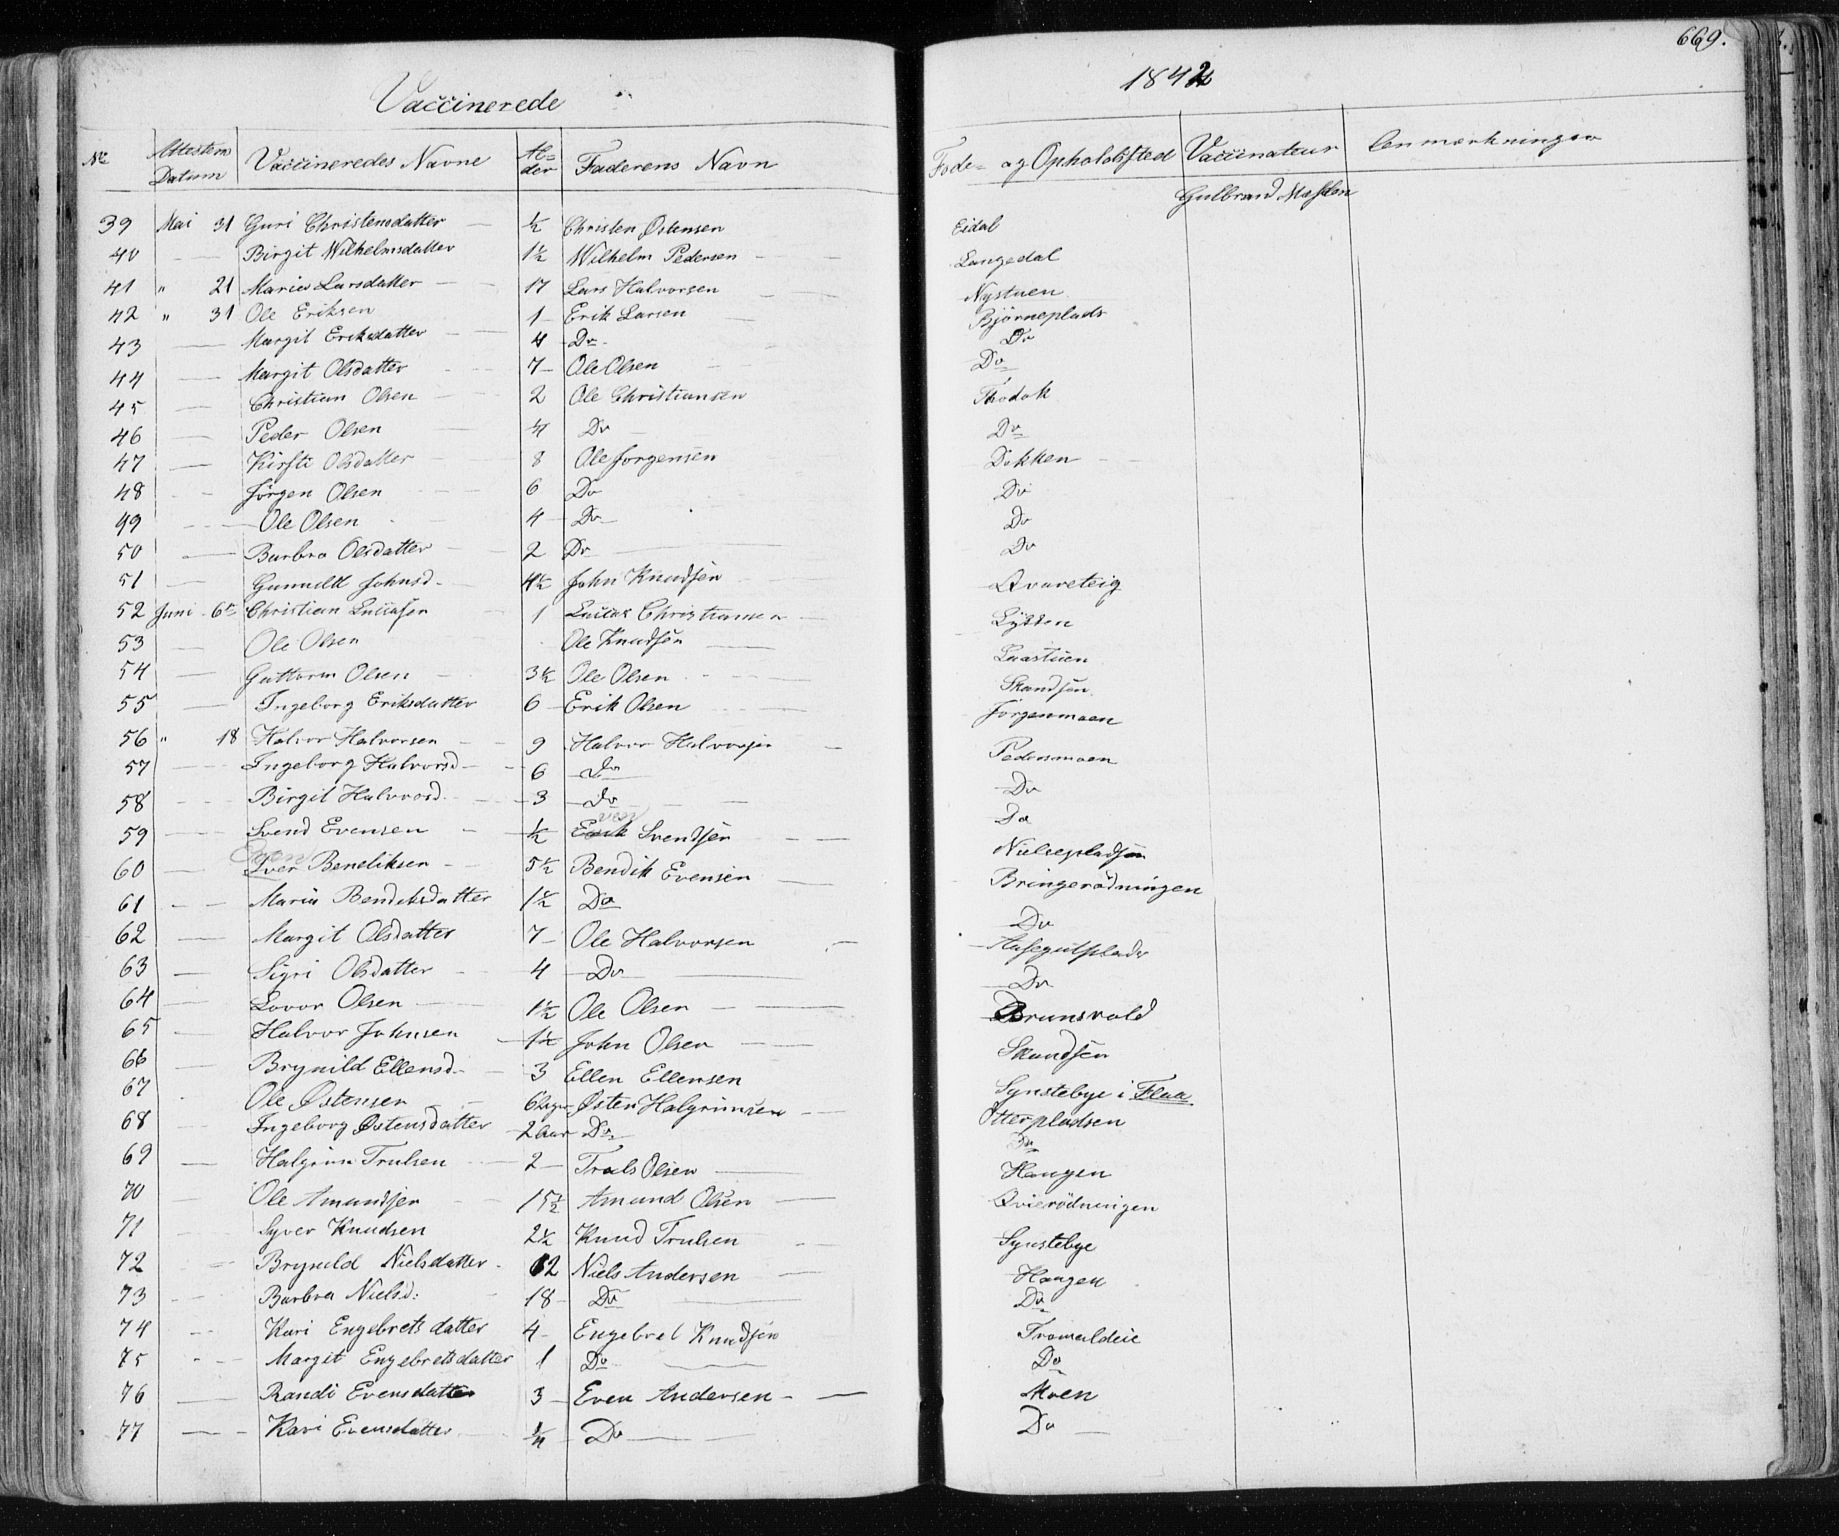 669.
Vaccinerede 1842
No Attestens Datum Vaccineredes Navne Al-der Faderens Navn Føde- og Opholdssted Vaccinateur Anmærkninger
Gulbrand
39 Mai 31 Guri Christensdatter — ½ Christen Østensen Eidal
40 — Birgit Wilhelmsdatter 1½ Wilhelm Pedersen — Langedal
41 " 21 Maria Larsdatter — 17 Lars Halvorsen Nystuen
42 " 31 Ole Eriksen 1 — Erik Larsen Bjørneplads
43 — Margit Eriksdatter — 4 Do — Do
44 — Margit Olsdatter 7 — Ole Olsen Do
45 — Christian Olsen — 2 Ole Christiansen
46 — Peder Olsen — 4 Do — Do
47 — Kirsti Olsdatter — 8 Ole Jorgensen Dokken —
48 — Jørgen Olsen 6 Do Do
49 — Ole Olsen 4 — Do — Do
50 — Barbro Olsdatter 2 Do — Do
51 — Gunnild Johnsd. 4½ John Knudsen Qvareteig
52 Juni 6te Christian 1 Christiansen —
53 — Ole Olsen Ole Knudsen —
54 — Guttorm Olsen 3½ Ole Olsen — Skandsen
55 — Ingeborg Eriksdatter 6 — Erik Olsen — Jørgenmoen
56 " 18 Halvor Halvorsen — 9 Halvor Halvorsen — Pedersmoen
57 — Ingeborg Halvorsd — 6 — Do Do
58 — Birgit Halvorsd. — 3 — Do — Do
59 — Svend Evensen — ½ Erik ven Svendsen — Nielsepladsen
60 — Iver Even Bendiksen — 5½ Bendik Evensen — Bringerødningen
61 — Maria Bendiksdatter 1½ Do Do
62 — Margit Olsdatter 7 — Ole Halvorsen —
63 — Sigri Olsdatter — 4 — Do — Do
64 — Lovor Olsen — 1½ Ole Olsen — Brunsvold
65 — Halvor Johnsen — 1½ John Olsen — Skandsen
66 Brynild Ellensd. — 3 Ellen Ellensen Synstebye i Flaa
67 Ole Østensen — Østen Halgrimsen — Otterpladsen
68 — Ingeborg Østensdatter — 2 Aar Do — Do
69 — Halgrim Trulsen — 2 — Truls Olsen — Haugen
70 — Ole Amundsen — 15½ Amund Olsen — Qvierødningen
71 — Syver Knudsen 2½ Knud Trulsen — Synstebye
72 — Brynild Nielsdatter — 12 Niels Andersen — Haugen
73 — Barbro Nielsd: — 18 — Do — Do
74 — Kari Engebretsdatter 4 — Engebret Knudsen Tromaldeie
75 — Margit Engebretsdatter 1 Do — Do
76 — Randi Evensdatter 3 — Even Andersen — Moen
77 — Kari Evensdatter — ¼ Do — Do —